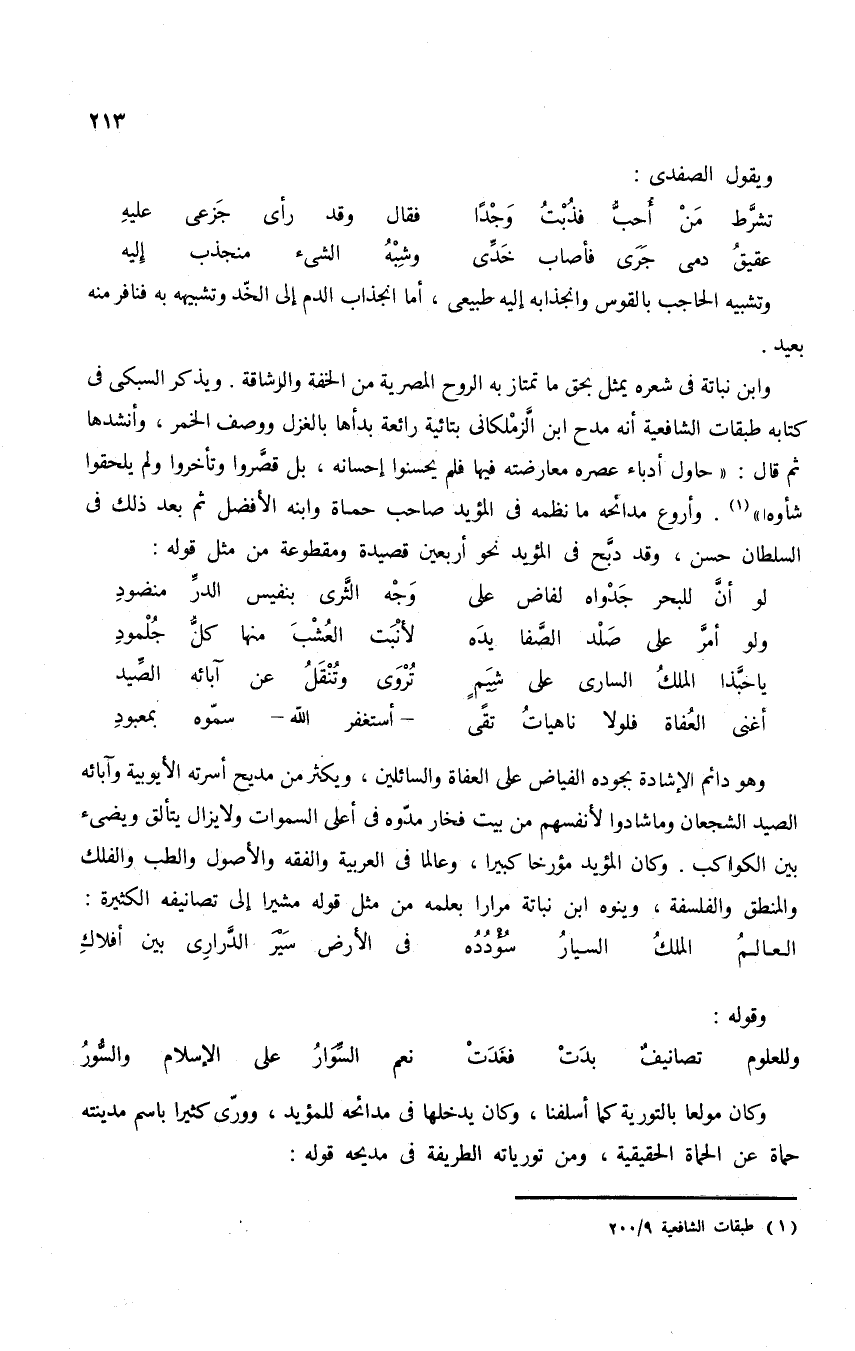 ٢١٣
ويقول الصفدى :
تشرَّط مَنْ أُحبُّ فذُبْتُ وَجْدًا فقال وقد رأى جَزعى عليهِ
عقيقُ دمى جَرَى فأصاب خَدِّى وشِبْهُ الشىء منجذب إليه
وتشبيه الحاجب بالقوس وانجذابه إليه طبيعى ، أما انجذاب الدم إلى الخّد وتشبيهه به فنافر منه
بعيد .
وابن نباتة فى شعره يمثل بحق ما تمتاز به الروح المصرية من الخفة والرشاقة . ويذكر السبكى فى
كتابه طبقات الشافعية أنه مدح ابن الَّزمْلكانى بتائية رائعة بدأها بالغزل ووصف الخمر ، وأنشدها
ثم قال : « حاول أدباء عصره معارضته فيها فلم يحسنوا إحسانه ، بل قصَّروا وتأخروا ولم يلحقوا
شأوه» (١) . وأروع مدائحه ما نظمه فى المؤيد صاحب حماة وابنه الأفضل ثم بعد ذلك فى
السلطان حسن ، وقد دبَّج فى المؤيد نحو أربعين قصيدة ومقطوعة من مثل قوله :
لو أنَّ للبحر جَدْواه لفاض على وَجْه الثَّرى بنفيس الدرِّ منضودِ
ولو أمرَّ على صَلْد الصَّفا يدَه لأنْبَت العُشْبَ منها كلُّ جُلْمودِ
ياحبَّذا الملكُ السارى على شِيَمٍ تُرْوَى وتُنْقَلُ عن آبائه الصِّيد
أغنى العُفاة فلولا ناهياتُ تقًى – أستغفر الله – سمّوه بمعبودِ
وهو دائم الإشادة بجوده الفياض على العفاة والسائلين ، ويكثر من مديح أسرته الأيوبية وآبائه
الصيد الشجعان وماشادوا لأنفسهم من بيت فخار مدّوه فى أعلى السموات ولايزال يتألق ويضىء
بين الكواكب . وكان المؤيد مؤرخا كبيرا ، وعالما فى العربية والفقه والأصول والطب والفلك
والمنطق والفلسفة ، وينوه ابن نباتة مرارا بعلمه من مثل قوله مشيرا إلى تصانيفه الكثيرة :
العالمُ الملكُ السيارُ سُؤْدُدُه فى الأرض سَيْرَ الدَّرارِى بين أفلاكِ
وقوله :
وللعلوم تصانيفٌ بدَتْ فغَدَتْ نعم السِّوَارُ على الإسلام والسُّورُ
وكان مولعا بالتورية كما أسلفنا ، وكان يدخلها فى مدائحه للمؤيد ، وورّى كثيرا باسم مدينته
حماة عن الحماة الحقيقية ، ومن تورياته الطريفة فى مديحه قوله :
(١) طبقات الشافعية ٢٠٠/٩